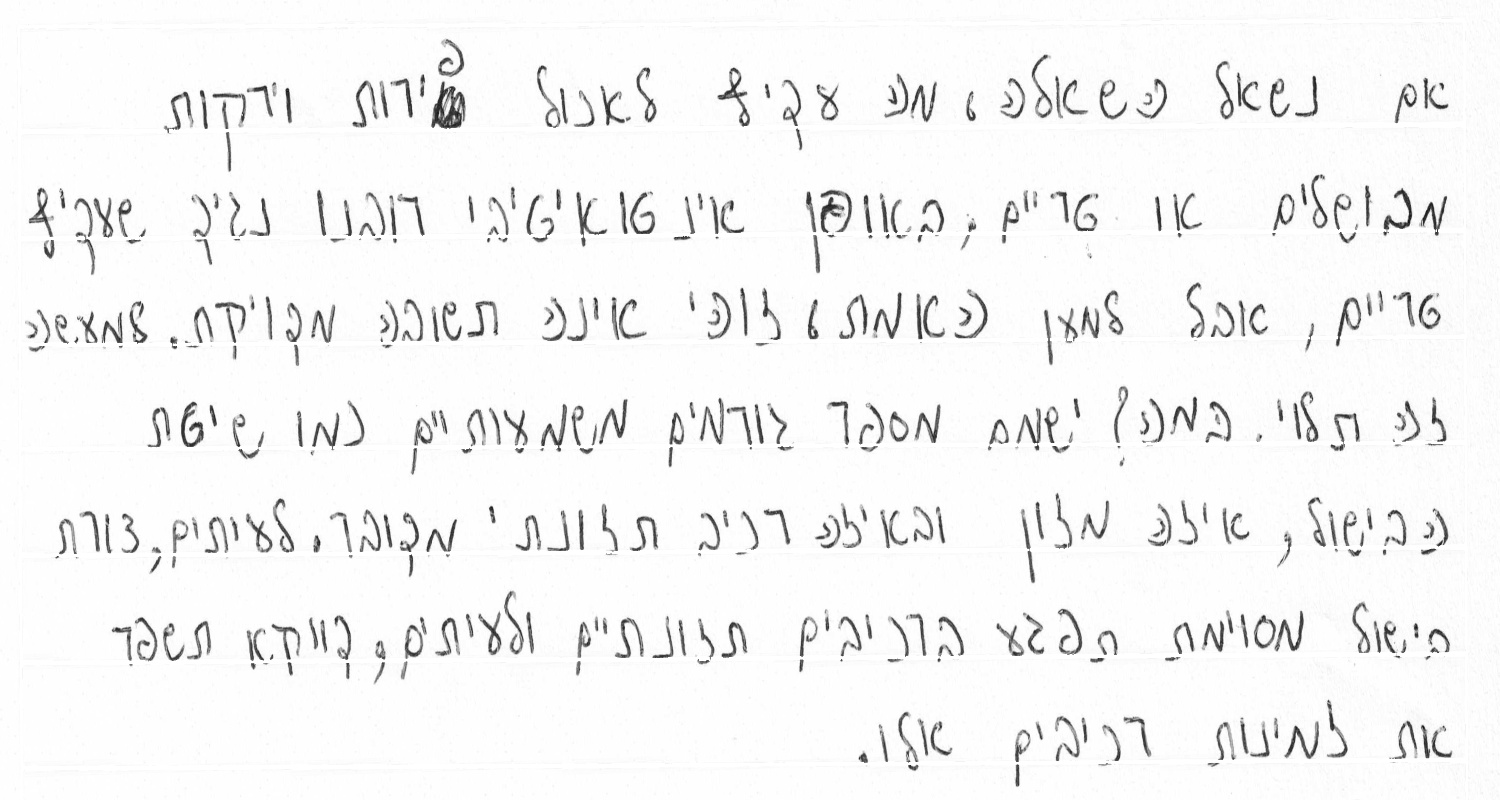 אם נשאל השאלה, מה עדיף לאכול פירות וירקות
מבושלים או טריים, באופן אינטואיטיבי רובנו נגיד שעדיף
טריים, אבל למען האמת, זוהי אינה תשובה מדויקת. למעשה
זה תלוי. במה? ישמם מספר גורמים משמעותיים כמו שיטת
הבישול, איזה מזון ובאיזה רכיב תזונתי מדובר. לעיתים, צורת
בישול מסוימת תפגע ברכיבים תזונתיים ולעיתים, דווקא תשפר
את זמינות רכיבים אלו.